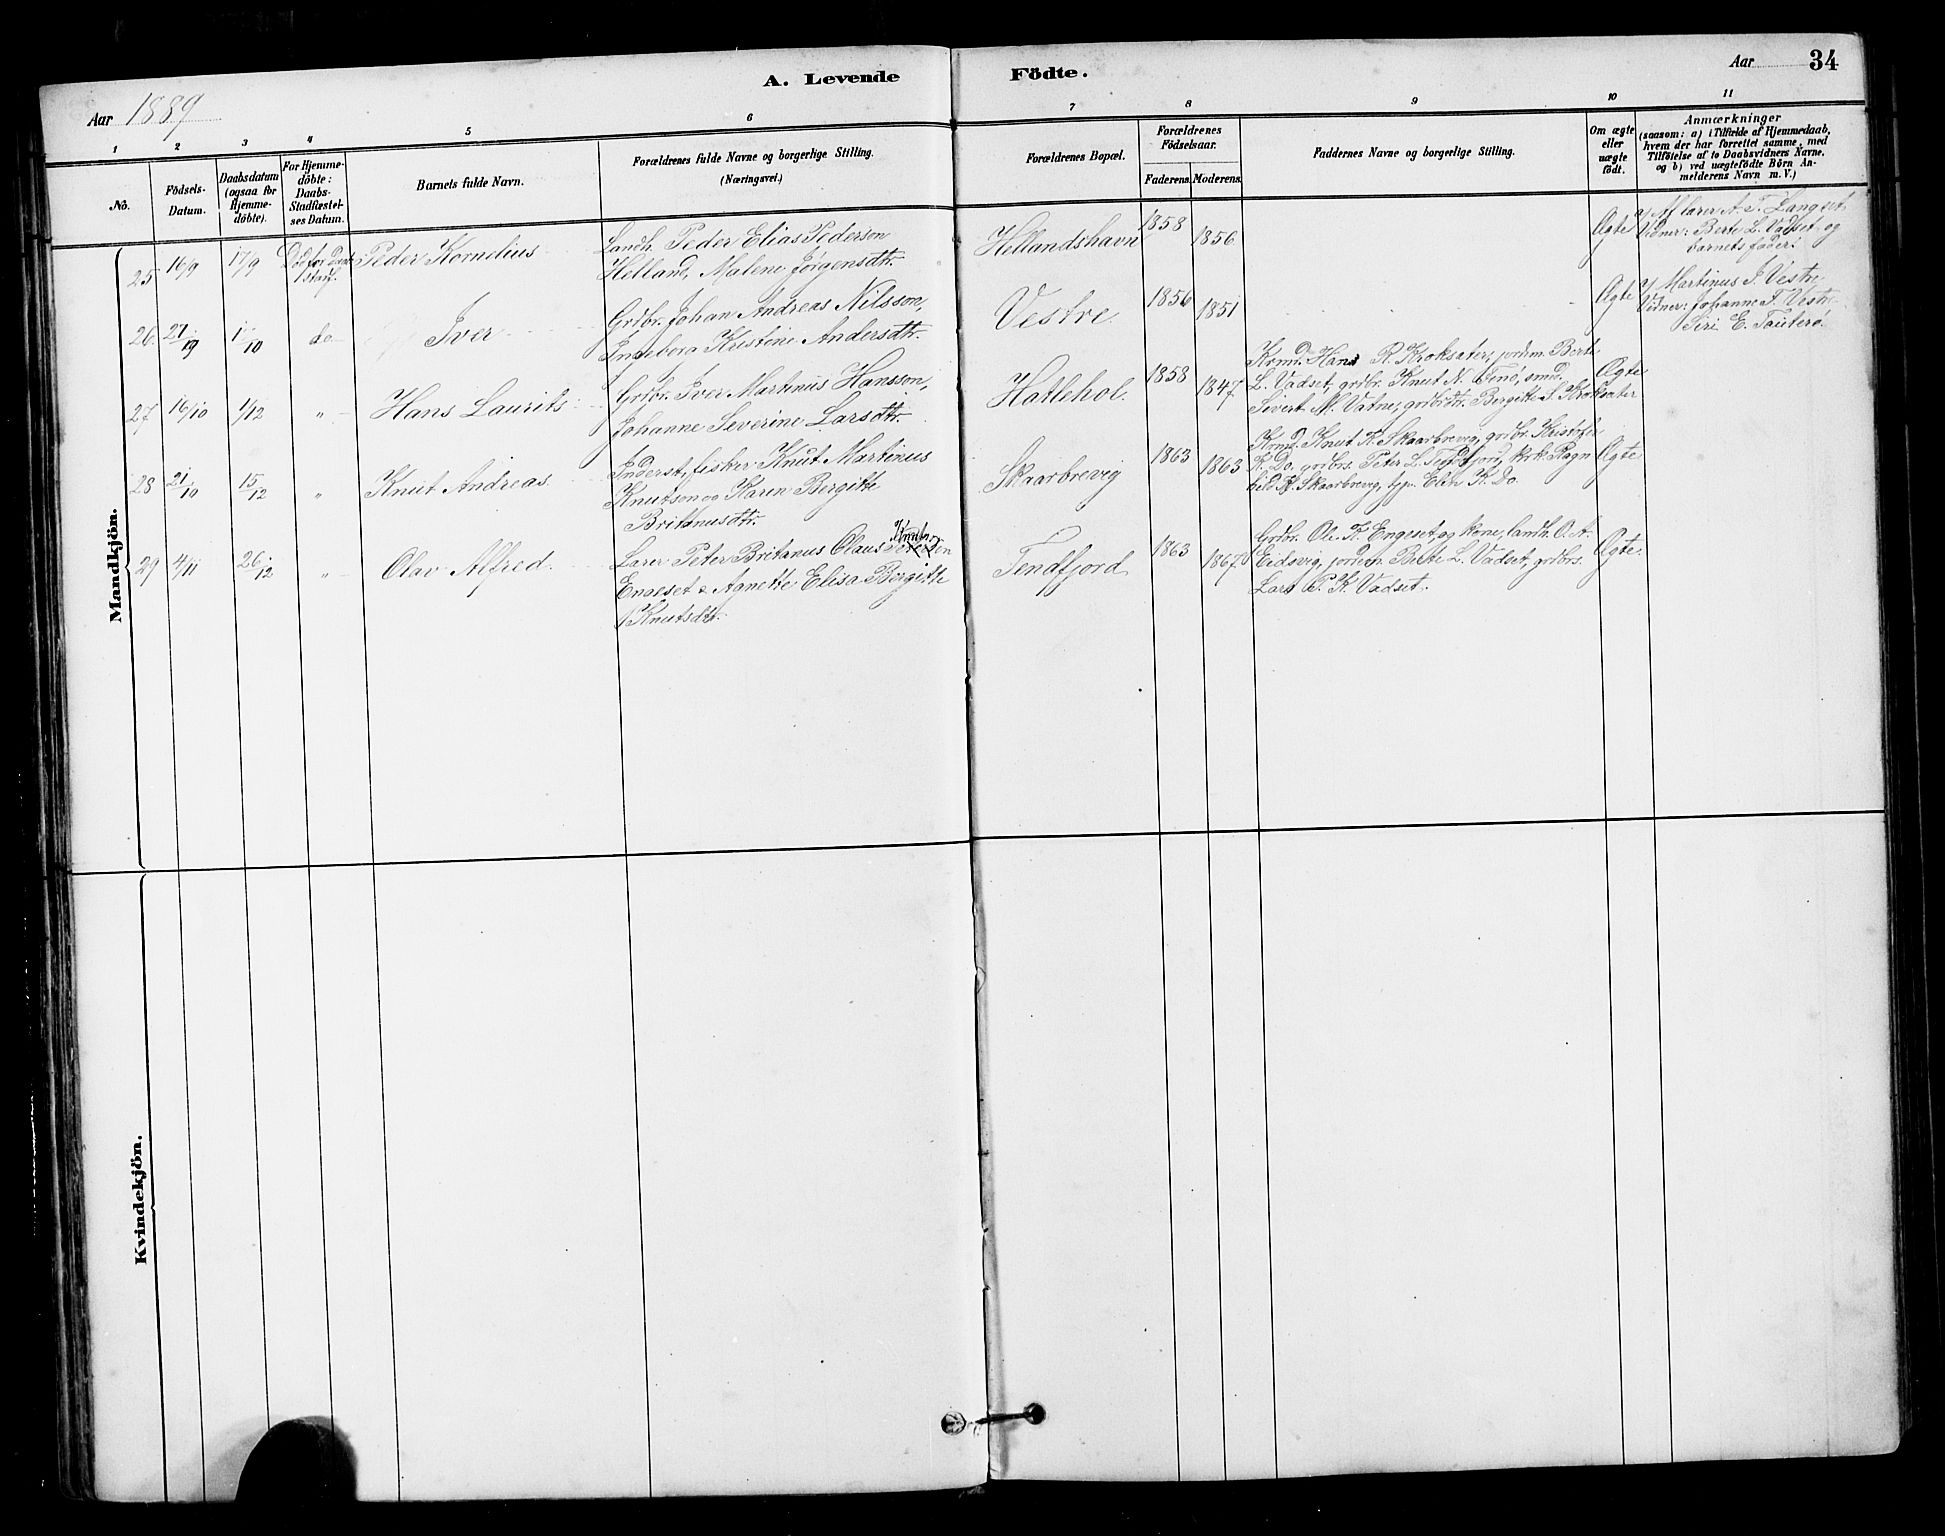 A. Levende Födte.
Aar 34
Aar 1889
1 2 3 4 5 6 7 8 9 10 11
No.
Födsels-
Datum.
Daabsdatum
(ogsaa for
Hjemme-
döbte).
For Hjemme-
döbte:
Daabs-
Stadfæstel-
ses Datum.
Barnets fulde Navn.
Forældrenes fulde Navne og borgerlige Stilling.
(Næringsvei.)
Forældrenes Bopæl.
Forældrenes
Födselsaar.
Faderens. Moderens.
Faddernes Navne og borgerlige Stilling.
Om ægte
eller
uægte
födt.
Anmærkninger
(saasom: a) i Tilfælde af Hjemmedaab,
hvem der har forrettet samme, med
Tilföielse af to Daabsvidners Navne,
og b) ved uægtefödte Börn An-
melderens Navn m. V.)
Mandkjön.
25 16/9 17/9 Död for Daabs
stadf.
Peder Kornelius
Landh. Peder Elias Pederson
Helland, Malene Jørgensdtr.
Hellandshavn 1858 1856
Ægte
a/ Af lærer A. T. Langset
Vidner: Berte L. Vadset og
barnets fader.
26 27/9 1/10 do
Iver
Grdbr. Johan Andreas Nilsson,
Ingeborg Kristine Andersdtr.
Vestre 1856 1851
Ægte
a/ Martinus J. Vestre
Vidner: Johanne T. Vestre
Siri E. Tauterø.
27 16/10 1/12 "
Hans Laurits
Grdbr. Iver Martinus Hansson,
Johanne Severine Larsdtr.
Hatlehol. 1858 1847
Krmd. Hans R. Kroksæter, jordm. Berte
L. Vadset, grdbr. Knut N. Tenø, smed
Sivert M. Vatne, grdbrdtr. Bergitte S. Kroksæter
Ægte
28 21/10 15/12 "
Knut Andreas
Inderst, fisker Knut Martinus
Knutson og Karen Bergitte
Britanusdtr.
Skaarbrevig 1863 1863
Krmd. Knut K. Skaarbrevig, grdbr. Kristofer
K. Do, grdbrs. Peter L. Tendfjord, krk. Ragn
hild K. Skaarbrevig, Elen K. Do.
Ægte
29 4/11 26/12 "
Olav Alfred.
Lærer Peter Britanus Olaus
Engeset & Agnette Elisa Bergitte
Knutsdtr.
Tendfjord 1863 1867
Grdbr. Ole K. Engeset og kone, landh. O. A.
Eidsvig, jordem. Berte L. Vadset, grdbrs.
Lars P. K. Vadset.
Ægte
Kvindekjön.